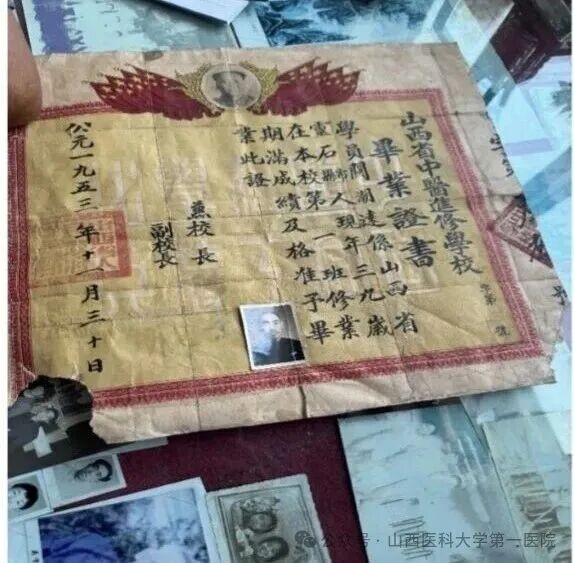 山西省中醫進修學校
畢業證書
字第 號
學員閻湖達係山西省
靈石縣市人現年三九歲
在本校第一班修業
期滿成績及格准予畢
業此證
兼校長
副校長
公元一九五三年十一月三十日
公众号·山西医科大学第一医院